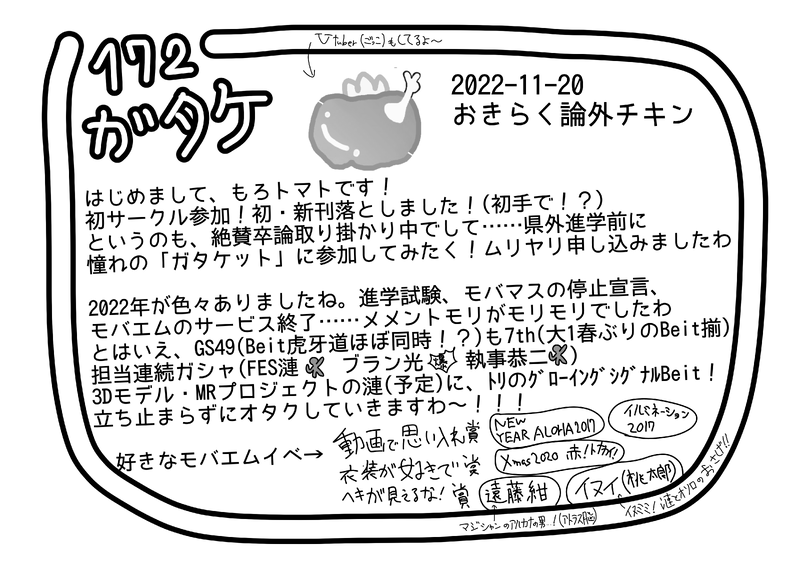 172
ガタケ
Vtuber(ごっこ)もしてるよ～
2022-11-20
おきらく論外チキン
はじめまして、もろトマトです！
初サークル参加！初・新刊落としました！(初手で！？)
というのも、絶賛卒論取り掛かり中でして……県外進学前に
憧れの「ガタケット」に参加してみたく！ムリヤリ申し込みましたわ
2022年が色々ありましたね。進学試験、モバマスの停止宣言、
モバエムのサービス終了……メメントモリがモリモリでしたわ
とはいえ、GS49(Beit虎牙道ほぼ同時！？)も7th(大1春ぶりのBeit揃)
担当連続ガシャ(FES漣 ブラン光 執事恭二)
3Dモデル・MRプロジェクトの漣(予定)に、トリのグローイングシグナルBeit！
立ち止まらずにオタクしていきますわ～！！！
好きなモバエムイベ→
動画で思い入れ賞
NEW YEAR ALOHA2017
イルミネーション2017
衣装が好きで賞
Xmas2020 赤！トカイ！
ヘキが見えるな！賞
遠藤紺
イヌイ(桃太郎)
マジシャンのアルカナの男…！(アトラス脳)
イヌミミ！漣とオソロのおさげ!!